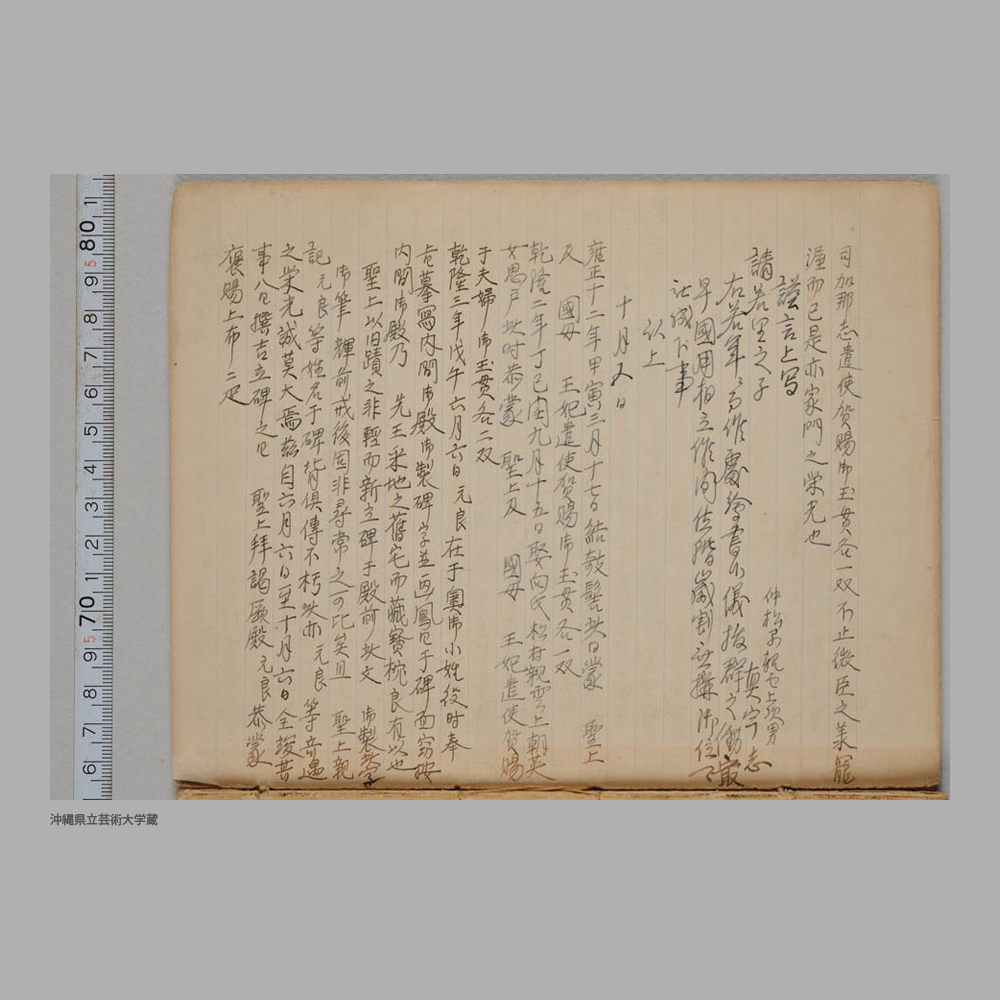 司加那志遣使賀賜御玉貫各一双不止微臣之美寵
渥而已是亦家門之栄光也
謹言上写
仲松親雲上次男
請若里之子 真宇志
右若年ゟ 作 書 儀抜群之働最
早國用相立 間位階 御
以上
十月又日
雍正十二年甲寅三月十七日結敬髻此日蒙 聖上
及 國母 王妃遣使賀賜御玉貫各一双
乾隆二年丁巳閏九月十五日娶向氏松村親雲上朝英
女思戸此時恭蒙 聖上及 國母 王妃遣使賀賜
于夫婦御玉貫各二双
乾隆三年戊午六月六日元良在于奥御小姓役時奉
命摹寫内間御殿御製碑字並画鳳凰于碑面窃按
内間御殿乃 先王采地之舊宅而藏寳枕良有以也
聖上以旧蹟之非輕而新立碑于殿前此文 御製
御筆輝前戒後固非尋常之可比矣且 聖上親
記元良等姓名于碑背俱傳不朽此亦元良等奇遇
之栄光誠莫大焉茲自六月六日至十月六日全竣其
事八日撰吉立碑之日 聖上拜謁厥殿元良恭蒙
褒賜上布二疋
80
70
1
9
8
7
6
5
4
3
2
1
9
8
7
6
沖縄県立芸術大学蔵